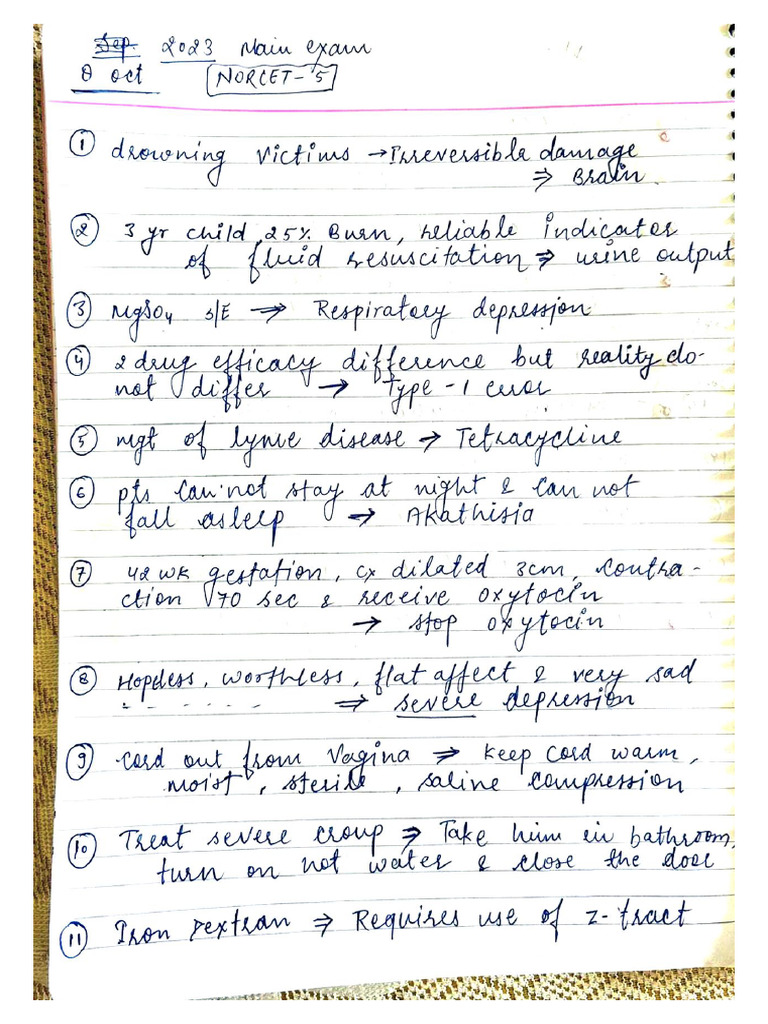 Sep. 2023 Main exam
8 oct NORCET-5
① drowning victims → Irreversible damage
⇒ Brain
② 3 yr child, 25% Burn, reliable indicator
of fluid resuscitation ⇒ urine output
③ MgSO4 S/E → Respiratory depression
④ 2 drug efficacy difference but reality do-
not differ → Type-1 error
⑤ mgt of lyme disease → Tetracycline
⑥ pts can not stay at night & can not
fall asleep → Akathisia
⑦ 42 wk gestation, cx dilated 3cm, contra-
ction 70 sec & receive oxytocin
→ stop oxytocin
⑧ Hopeless, worthless, flat affect & very sad
- - - - - - ⇒ severe depression
⑨ Cord out from Vagina ⇒ keep cord warm,
moist, sterile, saline compression
⑩ Treat severe croup ⇒ Take him in bathroom,
turn on hot water & close the door
⑪ Iron Dextran ⇒ Requires use of z-tract